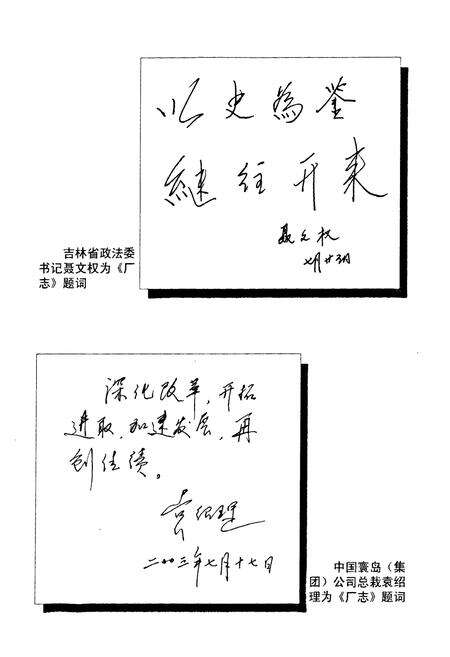 以史為鉴
继往开来
聂文权
七月廿三日
吉林省政法委
书记聂文权为《厂
志》题词
深化改革，开拓
进取，加速发展，再
创佳绩。
袁绍理
二〇〇三年七月十七日
中国寰岛（集
团）公司总裁袁绍
理为《厂志》题词